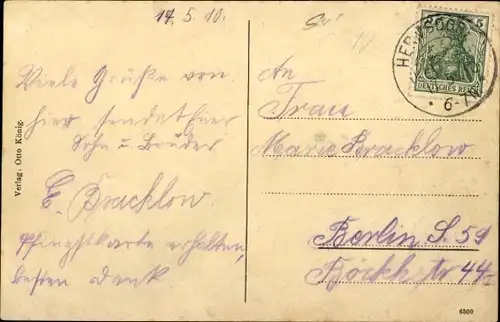 17.5.10.
Viele Grüße von
hier sendet Euer
Sohn u. Bruder
E. Bracklow.
Pfingstkarte erhalten,
besten Dank
Verlag: Otto König.
An
Frau
Marie Bracklow
Berlin S. 59
Böckhstr 44
5
DEUTSCHES REICH
6-7
6500